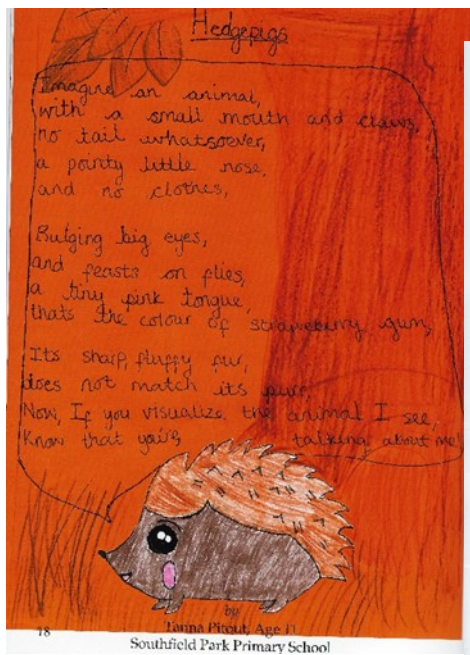 Hedgepigs
Imagine an animal,
with a small mouth and claws,
no tail whatsoever,
a pointy little nose,
and no clothes,
Bulging big eyes,
and feasts on flies,
a tiny pink tongue,
thats the colour of strawberry gum,
Its sharp, fluffy fur,
does not match its purr,
Now, If you visualize the animal I see,
Know that you're talking about me!
by
Tanna Pitout, Age 11
Southfield Park Primary School
78